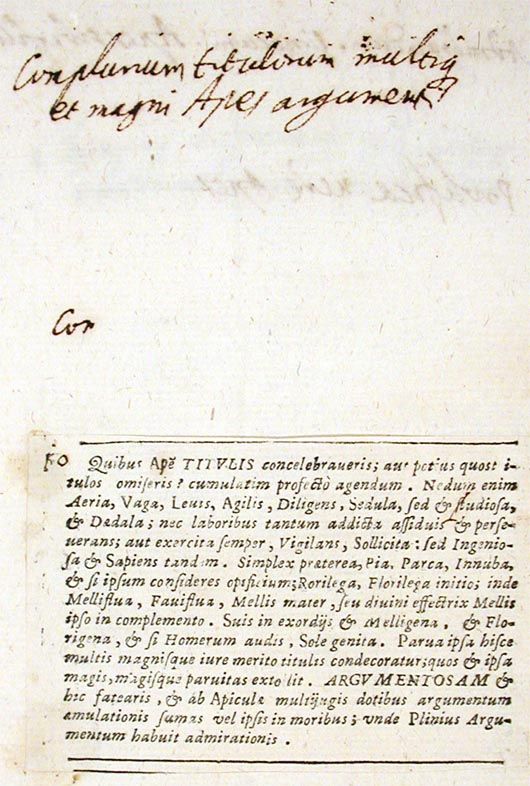 Complurium titulorum multiq
et magni Apes argument
Cor
Quibus Apẽ TITVLIS concelebraveris; aut potius quost i-
tulos omiseris? cumulatim profectò agendum. Nedum enim
Aeria, Vaga, Leuis, Agilis, Diligens, Sedula, sed & studiosa,
& Dædala; nec laboribus tantum addicta assiduis & perse-
verans; aut exercita semper, Vigilans, Sollicita: sed Ingenio-
sa & Sapiens tandem. Simplex præterea, Pia, Parca, Innuba,
& si ipsum consideres opificium; Rorilega, Florilega initios inde
Melliflua, Fauiflua, Mellis mater, seu divini effectrix Mellis
ipso in complemento. Suis in exordijs & Melligena. & Flo-
rigena, & si Homerum audis, Sole genita. Parua ipsa hisce
multis magnisque iure merito titulis condecoratur; quos & ipsa
magis, magisque paruitas extollit. ARGVMENTOSAM &
hic fatearis, & ab Apiculæ multijugis dotibus argumentum
æmulationis sumas vel ipsis in moribus; vnde Plinius Argu-
mentum habuit admirationis.